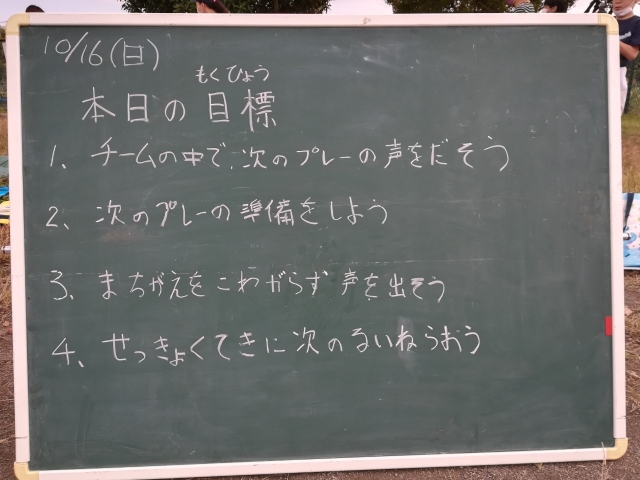 10/16(日)
もくひょう
本日の目標
1、チームの中で、次のプレーの声をだそう
2、次のプレーの準備をしよう
3、まちがえをこわがらず声を出そう
4、せっきょくてきに次のるいねらおう